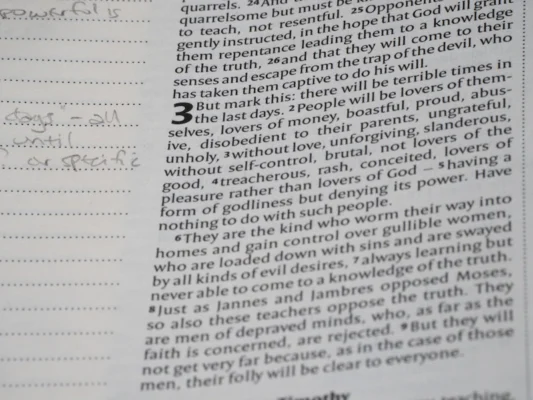 powerful is
days" - all
until
or specific
quarrels. 24And
quarrelsome but must be
to teach, not resentful. 25Opponents
gently instructed, in the hope that God will grant
them repentance leading them to a knowledge
of the truth, 26and that they will come to their
senses and escape from the trap of the devil, who
has taken them captive to do his will.
3 But mark this: there will be terrible times in
the last days. 2People will be lovers of them-
selves, lovers of money, boastful, proud, abus-
ive, disobedient to their parents, ungrateful,
unholy, 3without love, unforgiving, slanderous,
without self-control, brutal, not lovers of the
good, 4treacherous, rash, conceited, lovers of
pleasure rather than lovers of God – 5having a
form of godliness but denying its power. Have
nothing to do with such people.
6They are the kind who worm their way into
homes and gain control over gullible women,
who are loaded down with sins and are swayed
by all kinds of evil desires, 7always learning but
never able to come to a knowledge of the truth.
8Just as Jannes and Jambres opposed Moses,
so also these teachers oppose the truth. They
are men of depraved minds, who, as far as the
faith is concerned, are rejected. 9But they will
not get very far because, as in the case of those
men, their folly will be clear to everyone.
Timothy
teaching,